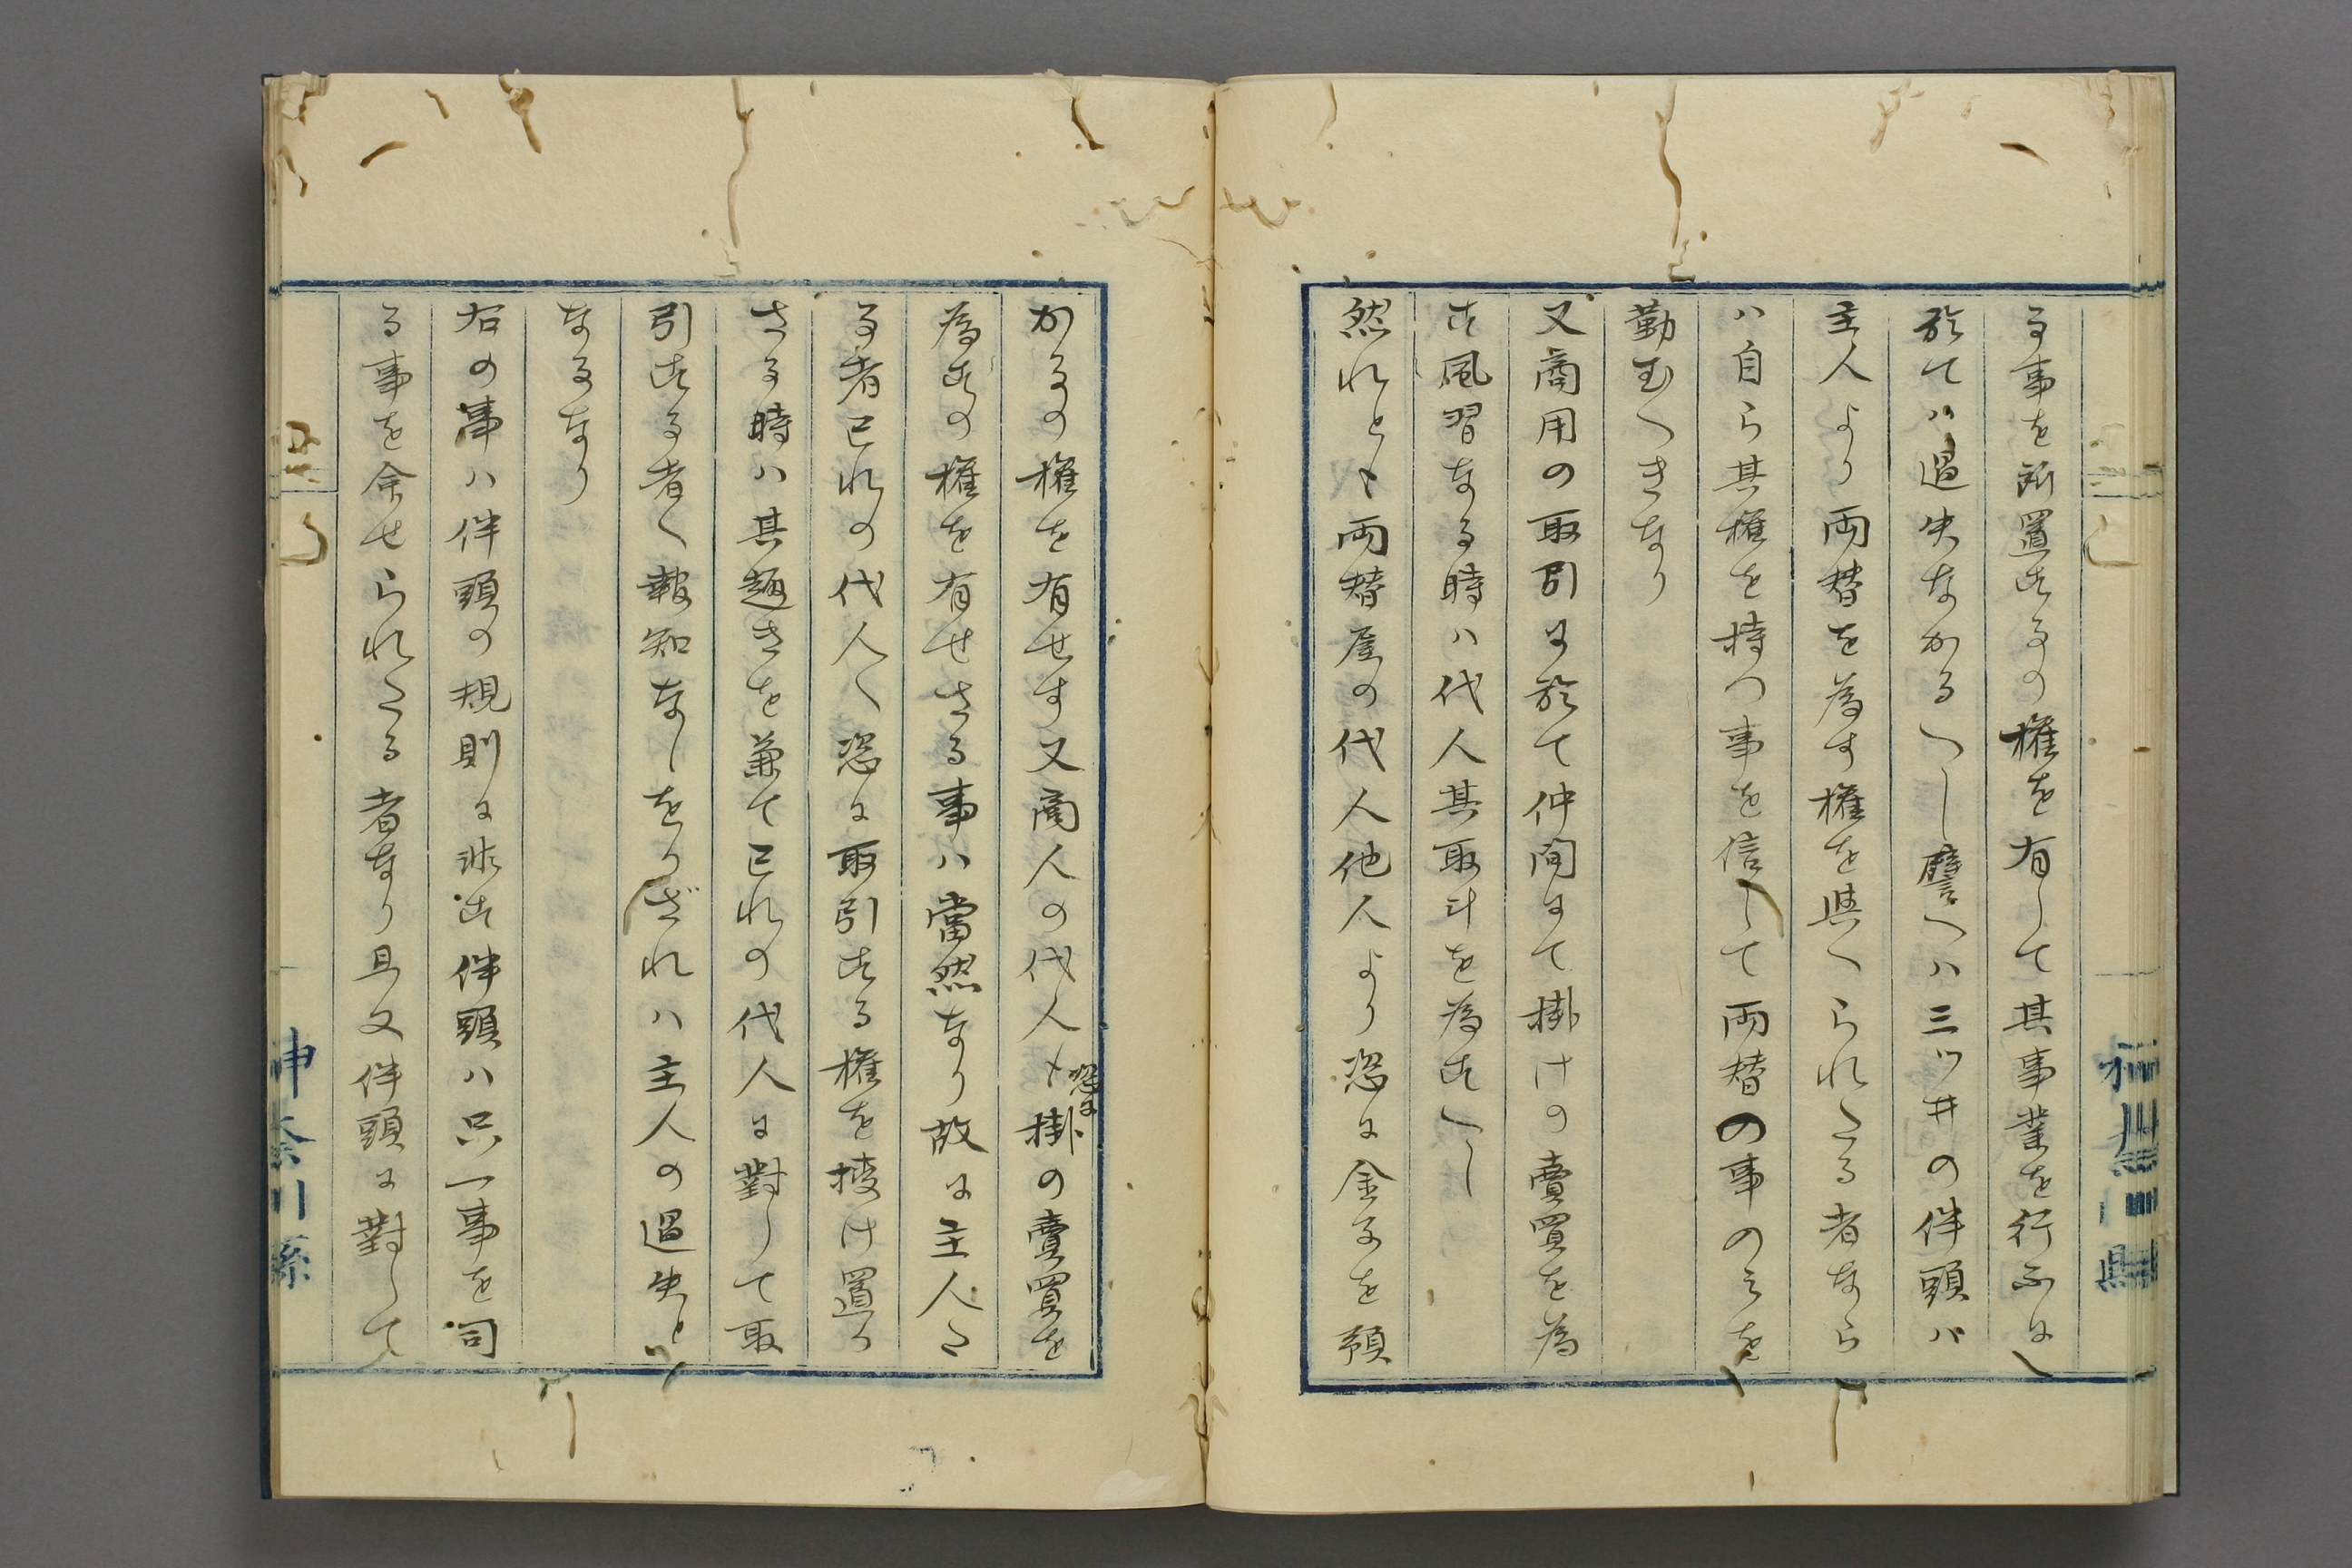 る事を所置せるの権を有して其事業を行ふに
於てハ過失なかるへし譬へハ三ツ井の伴頭ハ
主人より両替を為す権を與へられたる者なら
ハ自ら其権を持つ事を信して両替の事のミを
勤むへきなり
又商用の取引に於て仲間にて掛けの賣買を為
せ風習なる時ハ代人其取斗を為せへし
然れとも両替屋の代人他人より恣に金子を預
かるの権を有せす又商人の代人も恣に掛の賣買を
為せの権を有せさる事ハ當然なり故に主人た
る者己れの代人へ恣に取引せる権を授け置か
さる時ハ其趣きを兼て己れの代人に對して取
引せる者へ報知なしをかざれハ主人の過失と
なるなり
右の事ハ伴頭の規則に非せ伴頭ハ只一事を司
る事を命せられたる者なり且又伴頭に對して
神奈川縣